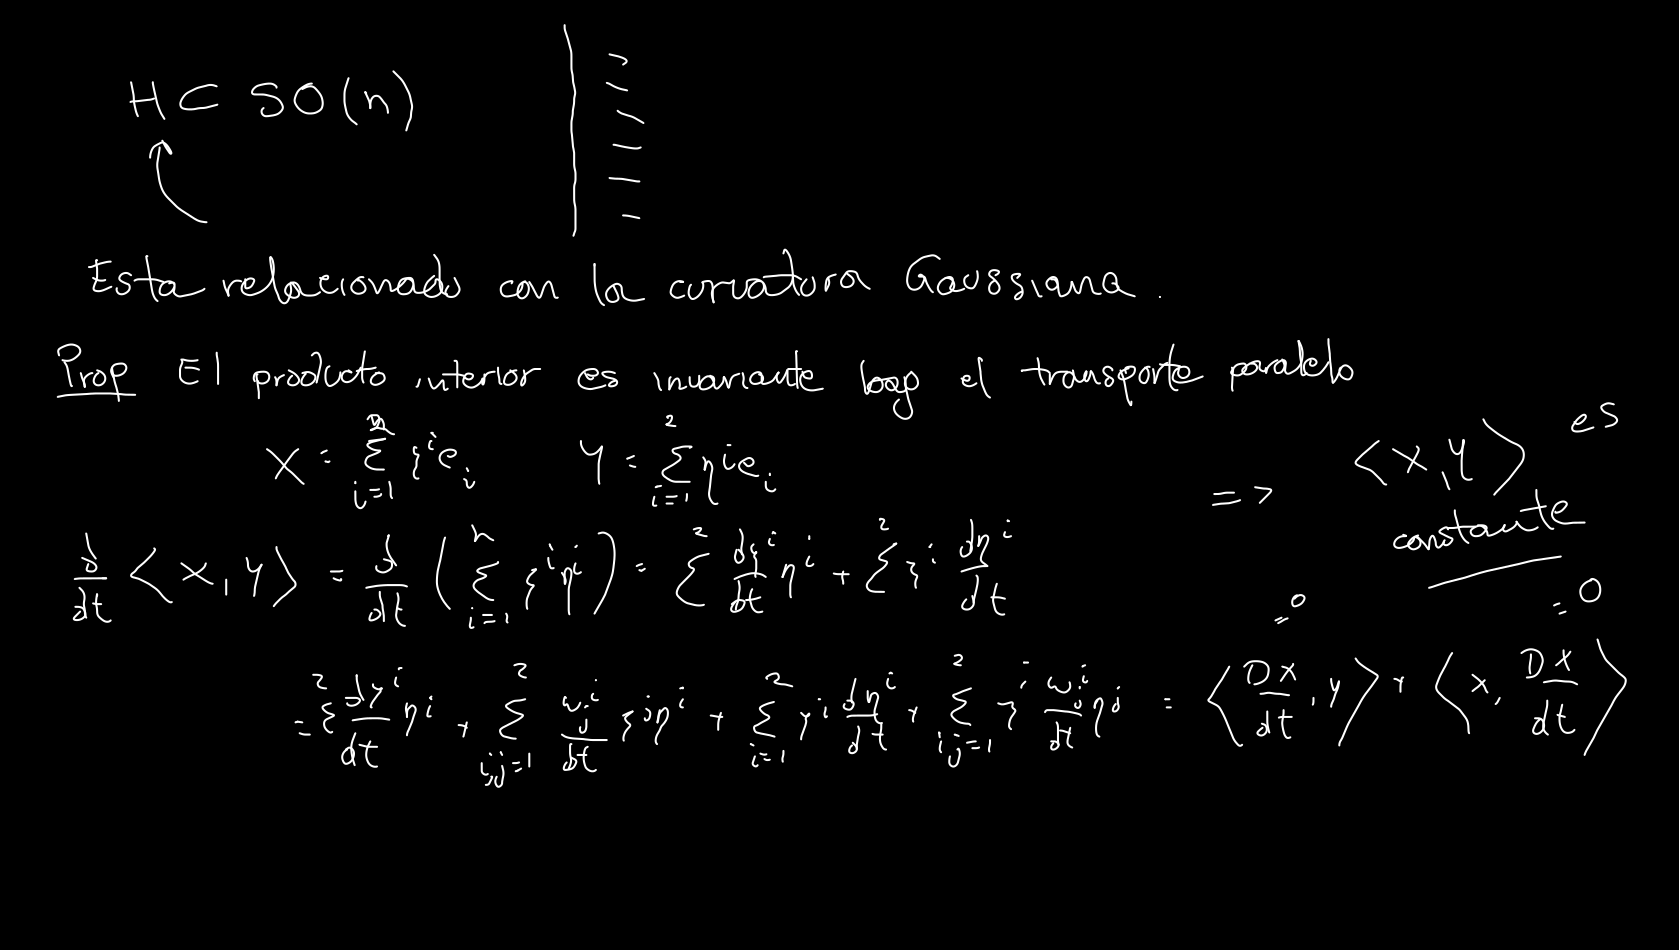 H ⊂ SO(n)
Esta relacionado con la curvatura Gaussiana.
Prop El producto interior es invariante bajo el transporte paralelo
X = \sum_{i=1}^{2} ξ^i e_i Y = \sum_{i=1}^{2} η^i e_i => <X, Y> es constante
d/dt <X, Y> = d/dt ( \sum_{i=1}^{n} ξ^i η^i ) = \sum^{2} dξ^i/dt η^i + \sum^{2} ξ^i dη^i/dt
= \sum^{2} dξ^i/dt η^i + \sum_{i,j=1}^{2} ω_j^i/dt ξ^j η^i + \sum_{i=1}^{2} ξ^i dη^i/dt + \sum_{i,j=1}^{2} ξ^i ω_j^i/dt η^j = <DX/dt, Y> + <X, DX/dt>
=0 =0